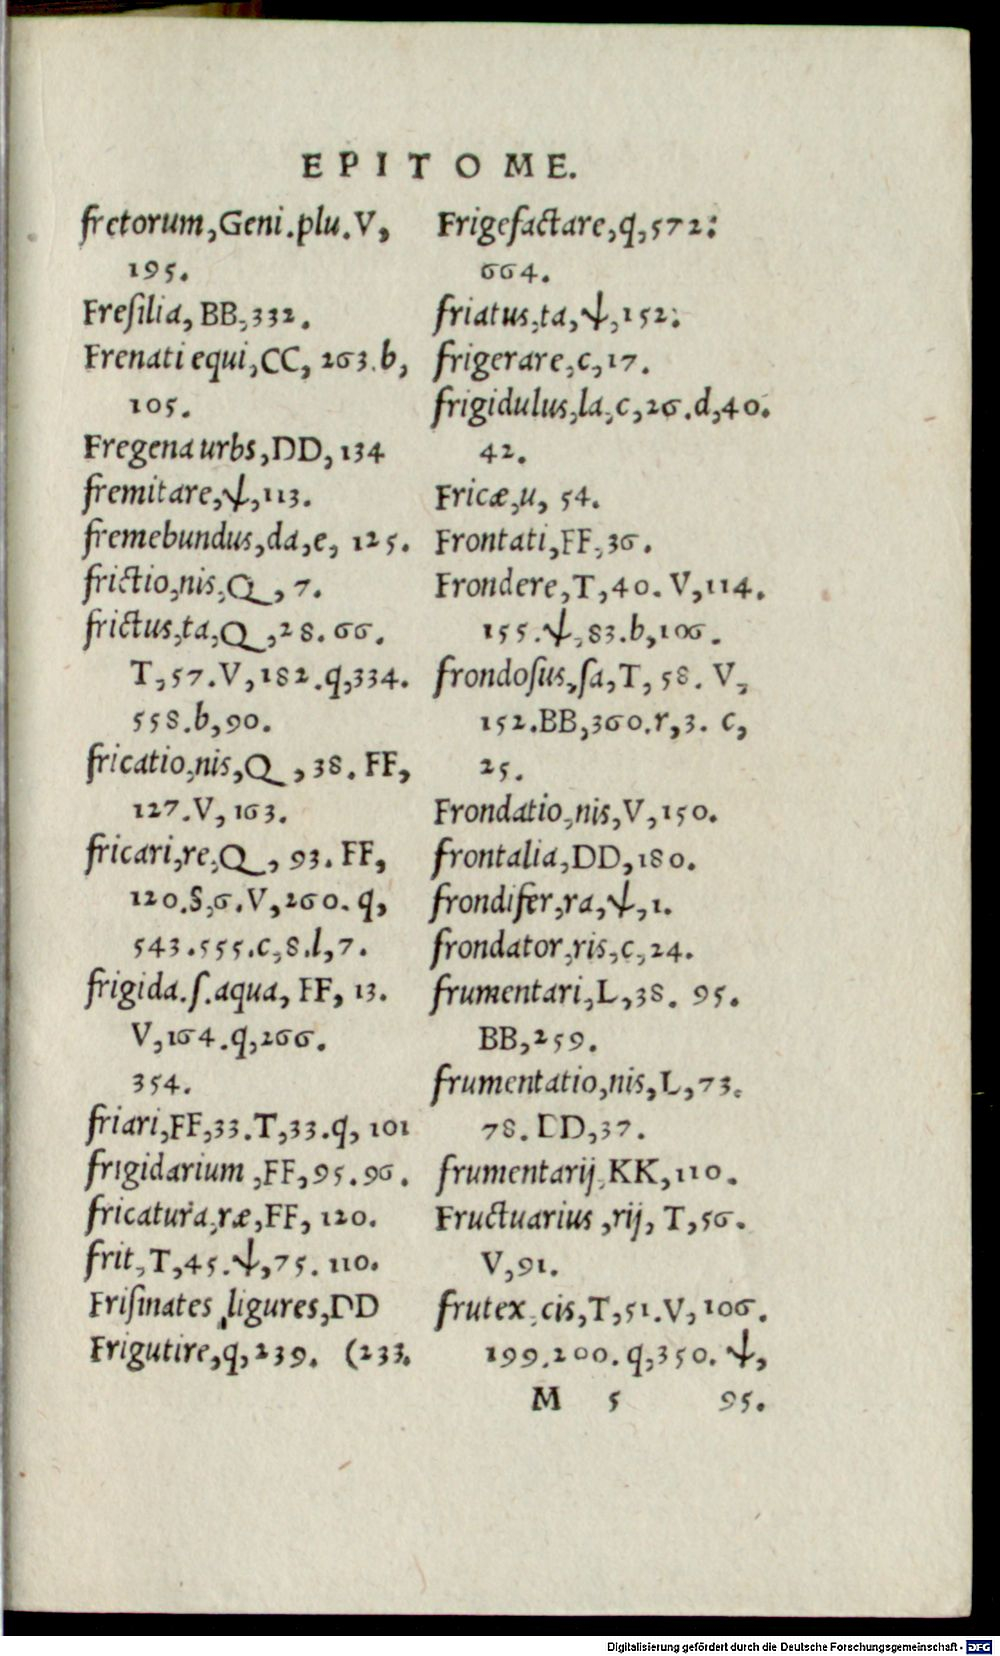 EPITOME.
fretorum, Geni. plu. V,
195.
Freſilia, BB, 332.
Frenati equi, CC, 263. b,
105.
Fregena urbs, DD, 134
fremitare, ѱ, 113.
fremebundus, da, e, 125.
frictio, nis, Q, 7.
frictus, ta, Q, 28. 66.
T, 57. V, 182. q, 334.
558. b, 90.
fricatio, nis, Q, 38. FF,
127. V, 163.
fricari, re, Q, 93. FF,
120. S, 6. V, 260. q,
543. 555. c, 8. l, 7.
frigida. ſ. aqua, FF, 13.
V, 164. q, 266.
354.
friari, FF, 33. T, 33. q, 101
frigidarium, FF, 95. 96.
fricatura, ræ, FF, 120.
frit, T, 45. ѱ, 75. 110.
Friſinates ligures, DD
Frigutire, q, 239. (233.
Frigefactare, q, 572:
664.
friatus, ta, ѱ, 152:
frigerare, c, 17.
frigidulus, la, c, 26. d, 40.
42.
Fricæ, u, 54.
Frontati, FF, 36.
Frondere, T, 40. V, 114.
155. ѱ, 83. b, 106.
frondoſus, ſa, T, 58. V,
152. BB, 360. r, 3. c,
25.
Frondatio, nis, V, 150.
frontalia, DD, 180.
frondifer, ra, ѱ, 1.
frondator, ris, c, 24.
frumentari, L, 38. 95.
BB, 259.
frumentatio, nis, L, 73.
78. DD, 37.
frumentarij, KK, 110.
Fructuarius, rij, T, 56.
V, 91.
frutex, cis, T, 51. V, 106.
199. 200. q, 350. ѱ,
M 5 95.
Digitalisierung gefördert durch die Deutsche Forschungsgemeinschaft - DFG